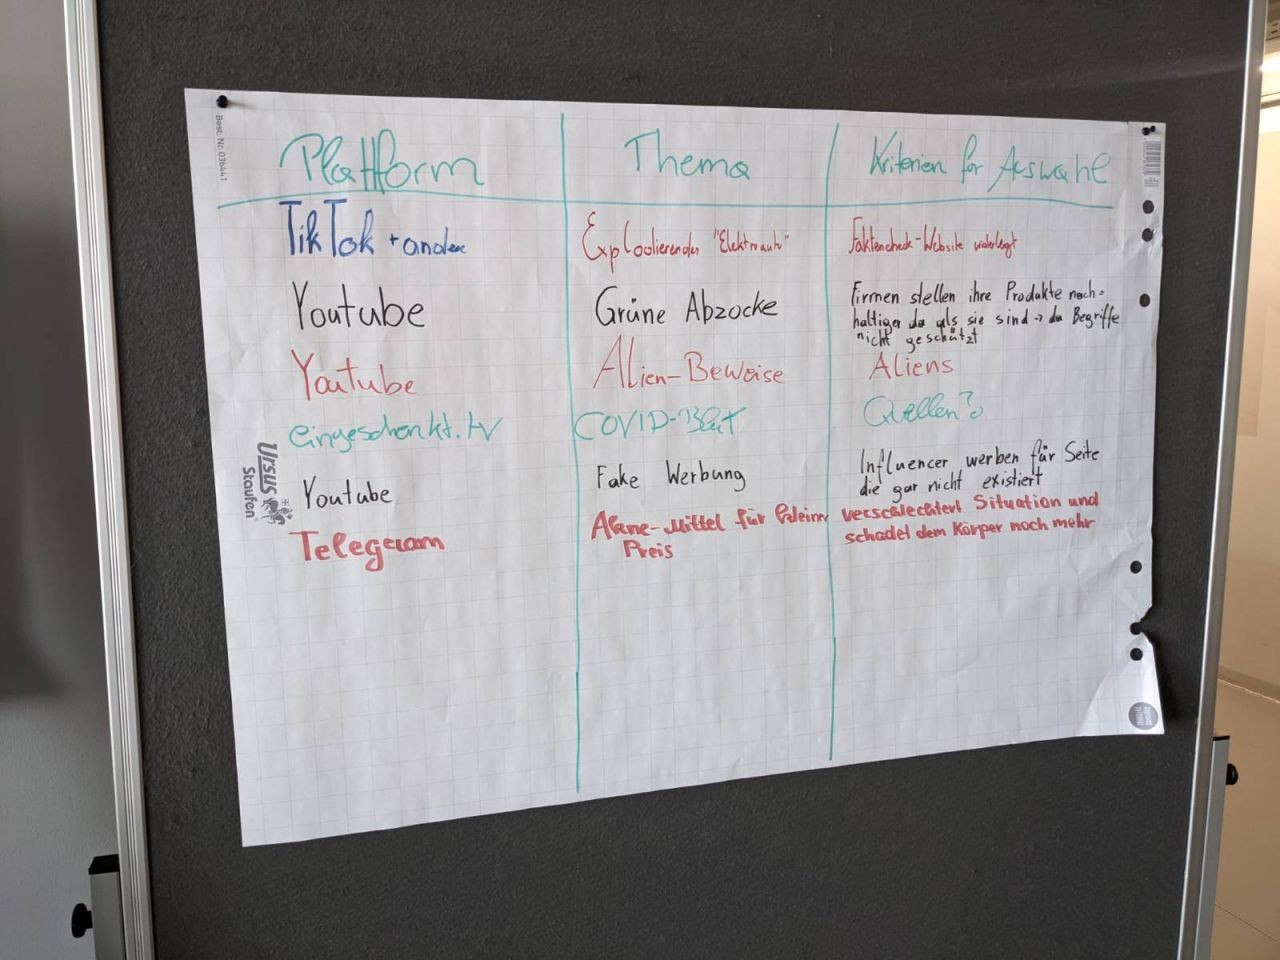 Best. Nr. 036441
Plattform Thema Kriterien für Auswahl
TikTok + andere Explodierendes "Elektroauto" Faktencheck-Website widerlegt
Youtube Grüne Abzocke Firmen stellen ihre Produkte nach-
haltiger da als sie sind → da Begriffe
nicht geschützt
Youtube Alien-Beweise Aliens
eingeschenkt.tv COVID-Blut Quellen?
Youtube Fake Werbung Influencer werben für Seite
die gar nicht existiert
Telegram Akne-Mittel für kleinen verschlechtert Situation und
Preis schadet dem Körper noch mehr
Ursus
Staufen